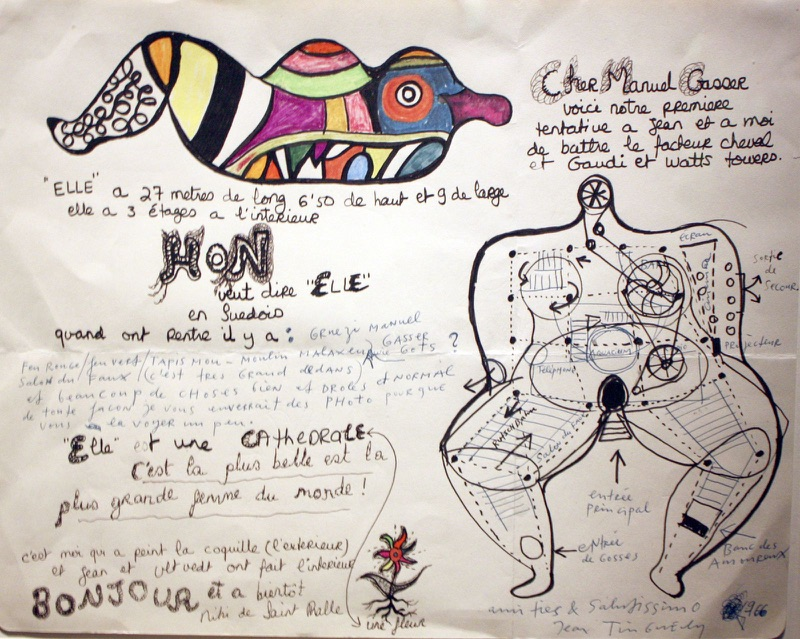 Cher Manuel Gasser
voici notre première
tentative a Jean et a moi
de battre le facteur cheval
et Gaudi et Watts towers.
"ELLE" a 27 metres de long 6'50 de haut et 9 de large
elle a 3 étages a l'interieur
HON
veut dire "ELLE"
en Suedois
quand ont rentre il y a :
GRUEZI MANUEL
GASSER
Feu Rouge/feu vert/TAPIS MOU-MOULIN MALAXEUR
(c'est tres GRAND deDANS)
et beaucoup de choses bien et droles et NORMAL
de toute facon je vous enverrait des PHOTO pur que
vous la voyer un peu.
"Elle" est une CAthedRALE
C'est la plus belle est la
plus grande femme du monde!
c'est moi qui a peint la coquille (l'exterieur)
et Jean et Ultvedt ont fait l'interieur
BONJOUR et a bientôt
Niki de Saint Phalle
une fleur
ECRAN
Sortie
de
Secours
PROJECTEUR
AQUARIUM
Telephone
entree
principal
entree
de Gosses
Banc des
Ammoureux
amities & Salutissimo
Jean Tinguely
1966